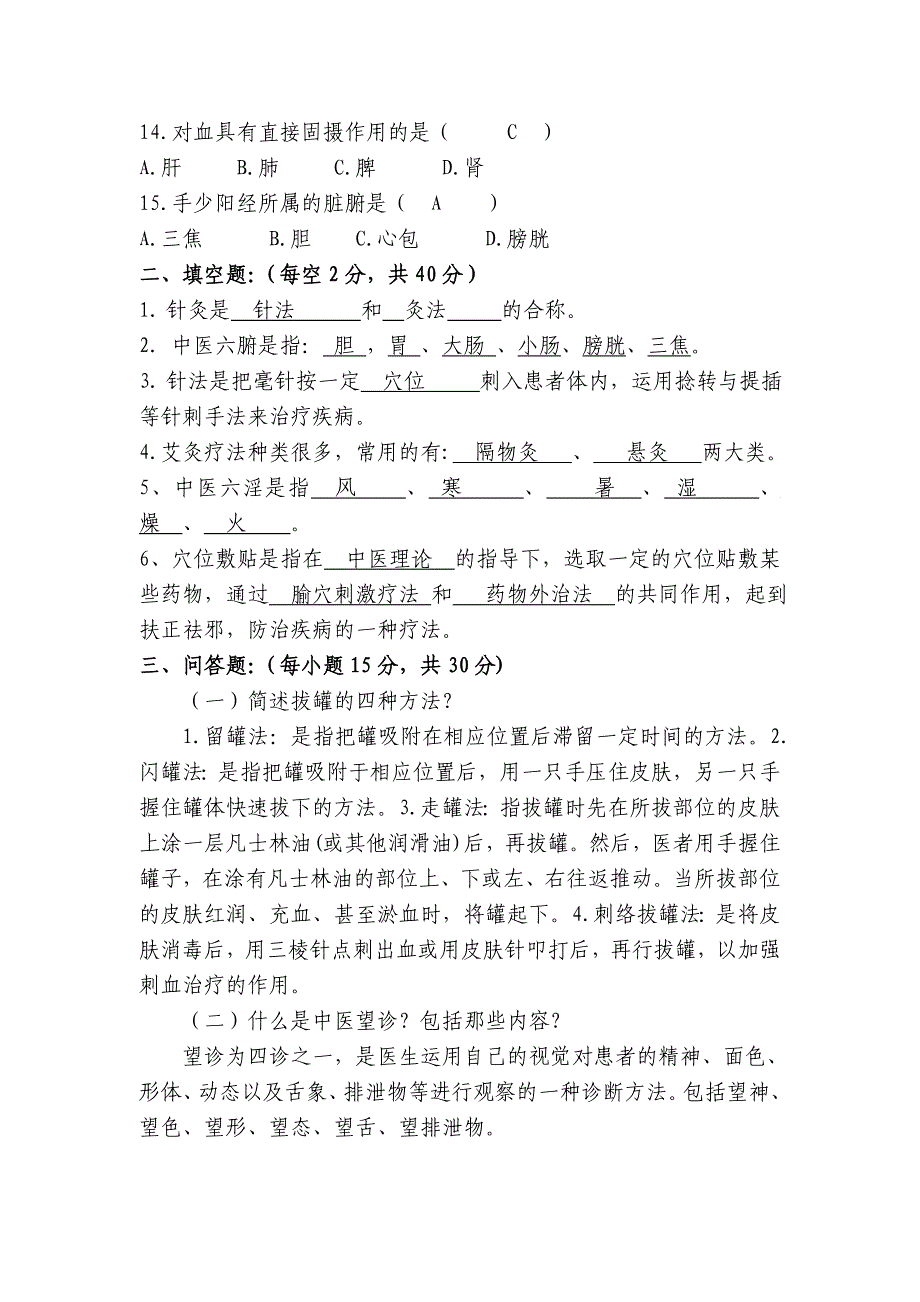 14.对血具有直接固摄作用的是（ C ）
A.肝 B.肺 C.脾 D.肾
15.手少阳经所属的脏腑是（ A ）
A.三焦 B.胆 C.心包 D.膀胱
二、填空题:（每空2分，共40分）
1. 针灸是 针法 和 灸法 的合称。
2. 中医六腑是指: 胆 ，胃 、大肠 、小肠、膀胱、三焦。
3. 针法是把毫针按一定 穴位 刺入患者体内，运用捻转与提插
等针刺手法来治疗疾病。
4.艾灸疗法种类很多，常用的有: 隔物灸 、 悬灸 两大类。
5、中医六淫是指 风 、 寒 、 暑 、 湿 、
燥 、 火 。
6、穴位敷贴是指在 中医理论 的指导下，选取一定的穴位贴敷某
些药物，通过 腧穴刺激疗法 和 药物外治法 的共同作用，起到
扶正祛邪，防治疾病的一种疗法。
三、问答题:（每小题15分，共30分）
（一）简述拔罐的四种方法？
1.留罐法: 是指把罐吸附在相应位置后滞留一定时间的方法。2.
闪罐法: 是指把罐吸附于相应位置后，用一只手压住皮肤，另一只手
握住罐体快速拔下的方法。3.走罐法: 指拔罐时先在所拔部位的皮肤
上涂一层凡士林油(或其他润滑油)后，再拔罐。然后，医者用手握住
罐子，在涂有凡士林油的部位上、下或左、右往返推动。当所拔部位
的皮肤红润、充血、甚至淤血时，将罐起下。4.刺络拔罐法: 是将皮
肤消毒后，用三棱针点刺出血或用皮肤针叩打后，再行拔罐，以加强
刺血治疗的作用。
（二）什么是中医望诊？包括那些内容？
望诊为四诊之一，是医生运用自己的视觉对患者的精神、面色、
形体、动态以及舌象、排泄物等进行观察的一种诊断方法。包括望神、
望色、望形、望态、望舌、望排泄物。